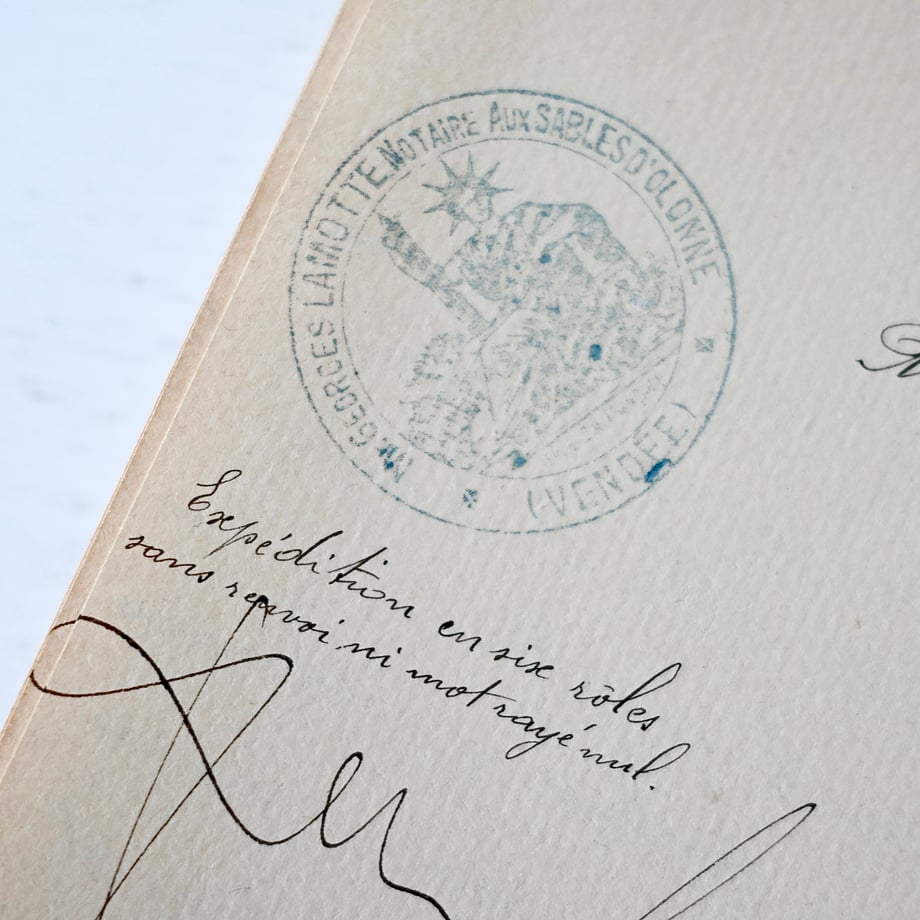 Mr. GEORGES LAMOTTE NOTAIRE AUX SABLES D'OLONNE
(VENDÉE)
Expédition en six rôles
sans renvoi ni mot rayé nul.